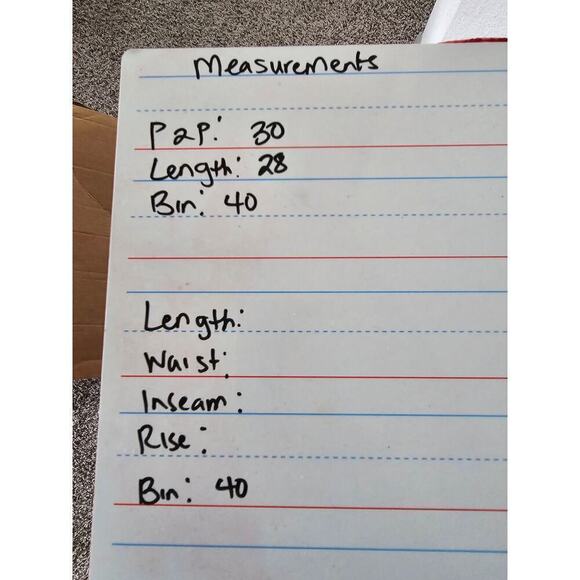 Measurements
P2P: 30
Length: 28
Bin: 40
Length:
Waist:
Inseam:
Rise:
Bin: 40